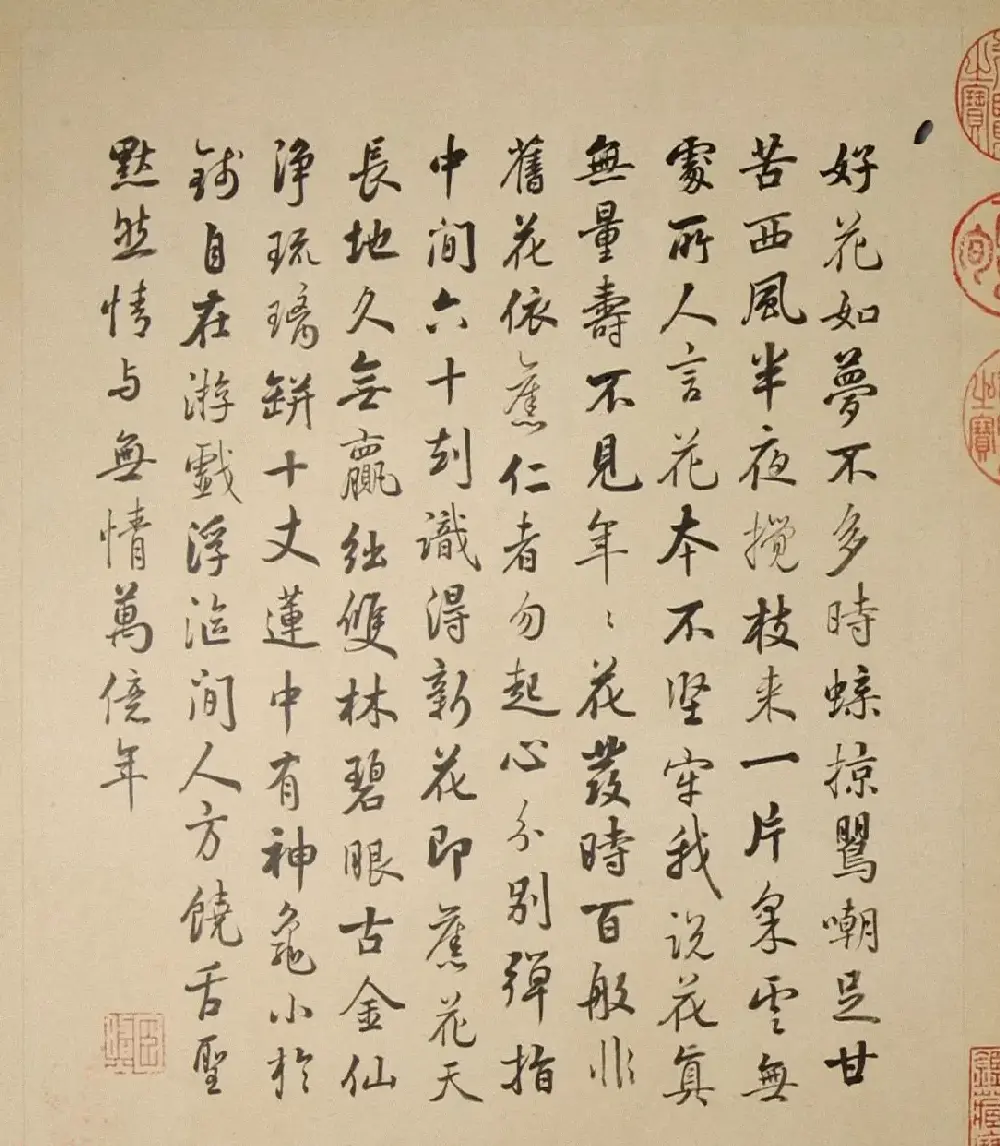 好花如夢不多時蝶掠鶯嘲足甘
苦西風半夜攪枝来一片采雲無
處所人言花本不堅牢我説花真
無量壽不見年〻花發時百般非
舊花依舊仁者勿起心分別彈指
中間六十刹識得新花即舊花天
長地久無贏絀雙林碧眼古金仙
浄琉璃缾十丈蓮中有神龜小於
錢自在游戲浮漚間人方饒舌聖
默然情与無情萬億年